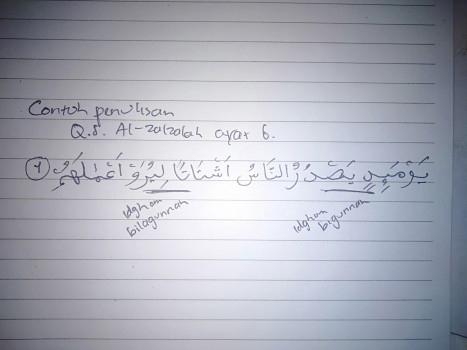 Contoh penulisan
Q.S. Al-zalzalah ayat 6.
يَوْمَىِٕذٍ يَصْدُرُ النَّاسُ اَشْتَاتًا لِيُرَوْ اَعْمَالَهُمْ (٦)
idgham bilagunnah
idgham bigunnah